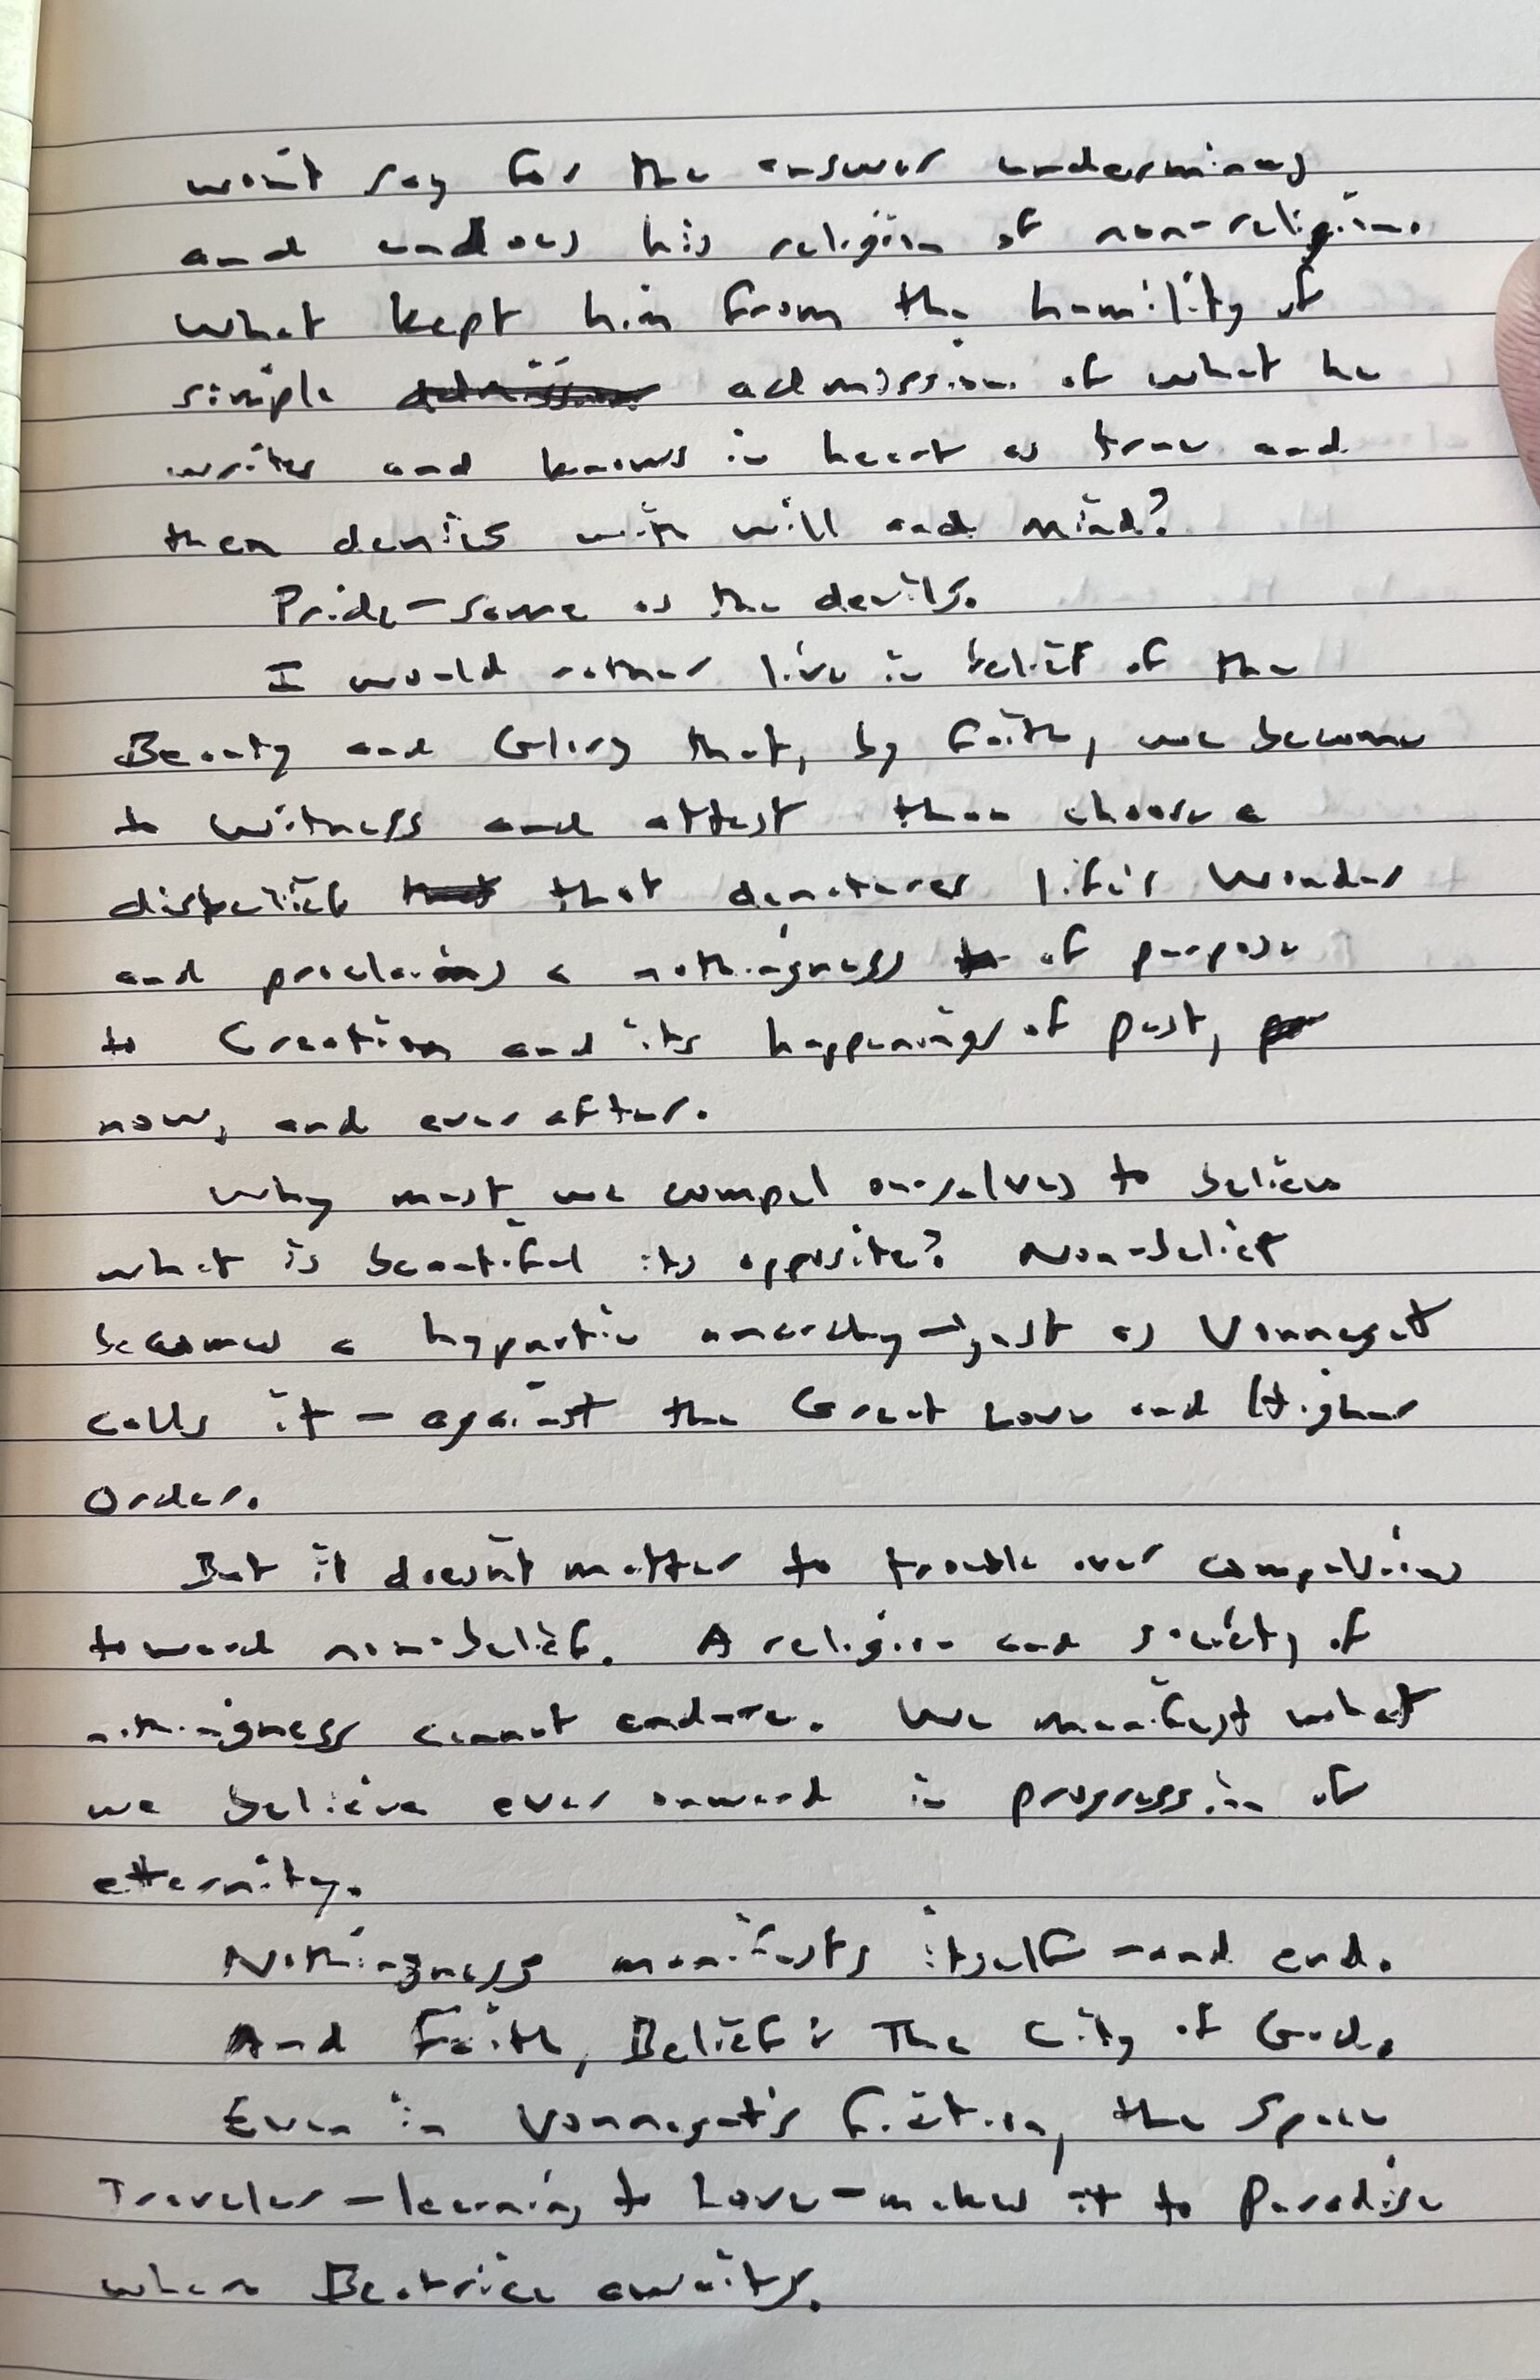 won't say for the answer undermines
and undoes his religion of non-religion.
What kept him from the humility of
simple admission of what he
writes and knows in heart as true and
then denies with will and mind?
Pride—same as the devil's.
I would rather live in belief of the
Beauty and Glory that, by faith, we become
to witness and attest than choose a
disbelief that denatures life's wonder
and proclaims a nothingness of purpose
to Creation and its happenings of past,
now, and ever after.
Why must we compel ourselves to believe
what is beautiful its opposite? Non-belief
becomes a hypnotic anarchy—just as Vonnegut
calls it—against the Great Love and Higher
Order.
But it doesn't matter to trouble over compulsions
toward non-belief. A religion and society of
nothingness cannot endure. We manifest what
we believe ever onward in progression of
etternity.
Nothingness manifests itself—and end.
And Faith, Belief: The City of God.
Even in Vonnegut's fiction, the Space
Traveler—learning to Love—makes it to Paradise
where Beatrice awaits.